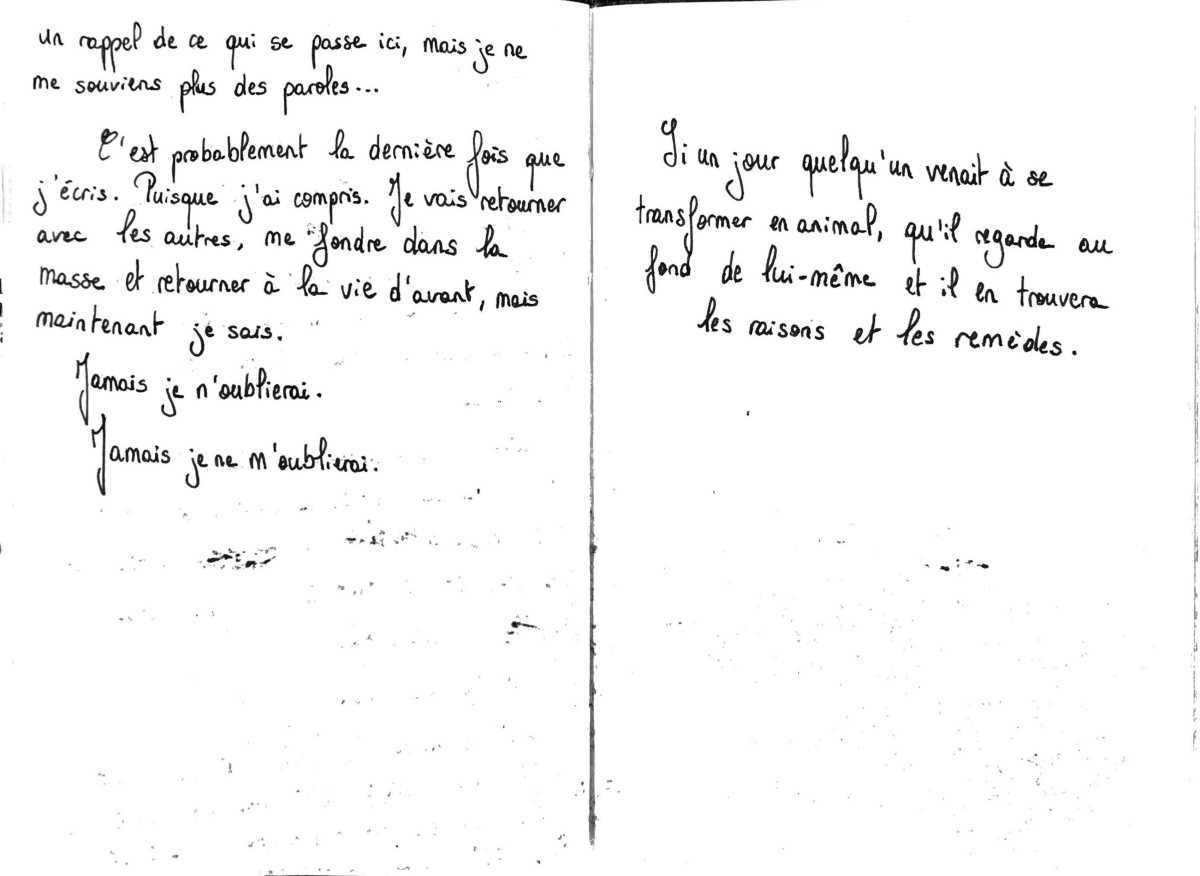 un rappel de ce qui se passe ici, mais je ne
me souviens plus des paroles...
C'est probablement la dernière fois que
j'écris. Puisque j'ai compris. Je vais retourner
avec les autres, me fondre dans la
masse et retourner à la vie d'avant, mais
maintenant je sais.
Jamais je n'oublierai.
Jamais je ne m'oublierai.
Si un jour quelqu'un venait à se
transformer en animal, qu'il regarde au
fond de lui-même et il en trouvera
les raisons et les remèdes.